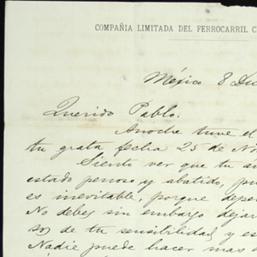 COMPAÑIA LIMITADA DEL FERROCARRIL C
México 8
Querido Pablo.
Anoche tuve el
tu grata fecha 25 de No
Siento ver que tu
estado penoso y abatido, pu
es inevitable, porque depen
No debes sin embargo dejar
de tu sensibilidad, y es
Nadie puede hacer mas